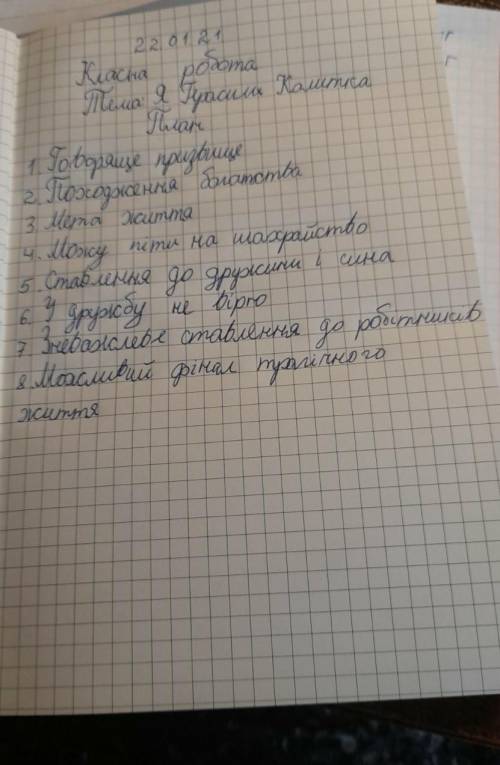 22.01.21
Класна робота
Тема: Я Гурасили Калитка
План
1. Говоряще прізвище
2. Походження богатства
3. Мета життя
4. Можу піти на шахрайство
5. Ставлення до дружини і сина
6. У дружбу не вірю
7. Зневажлеве ставлення до робітників
8. Можливий фінал трагічного
життя